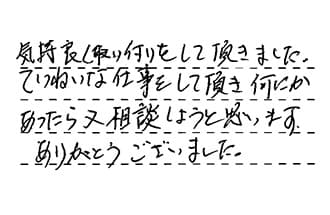 気持良く取り付けをして頂きました。
ていねいな仕事をして頂き何にか
あったら又相談しようと思います
ありがとうございました。